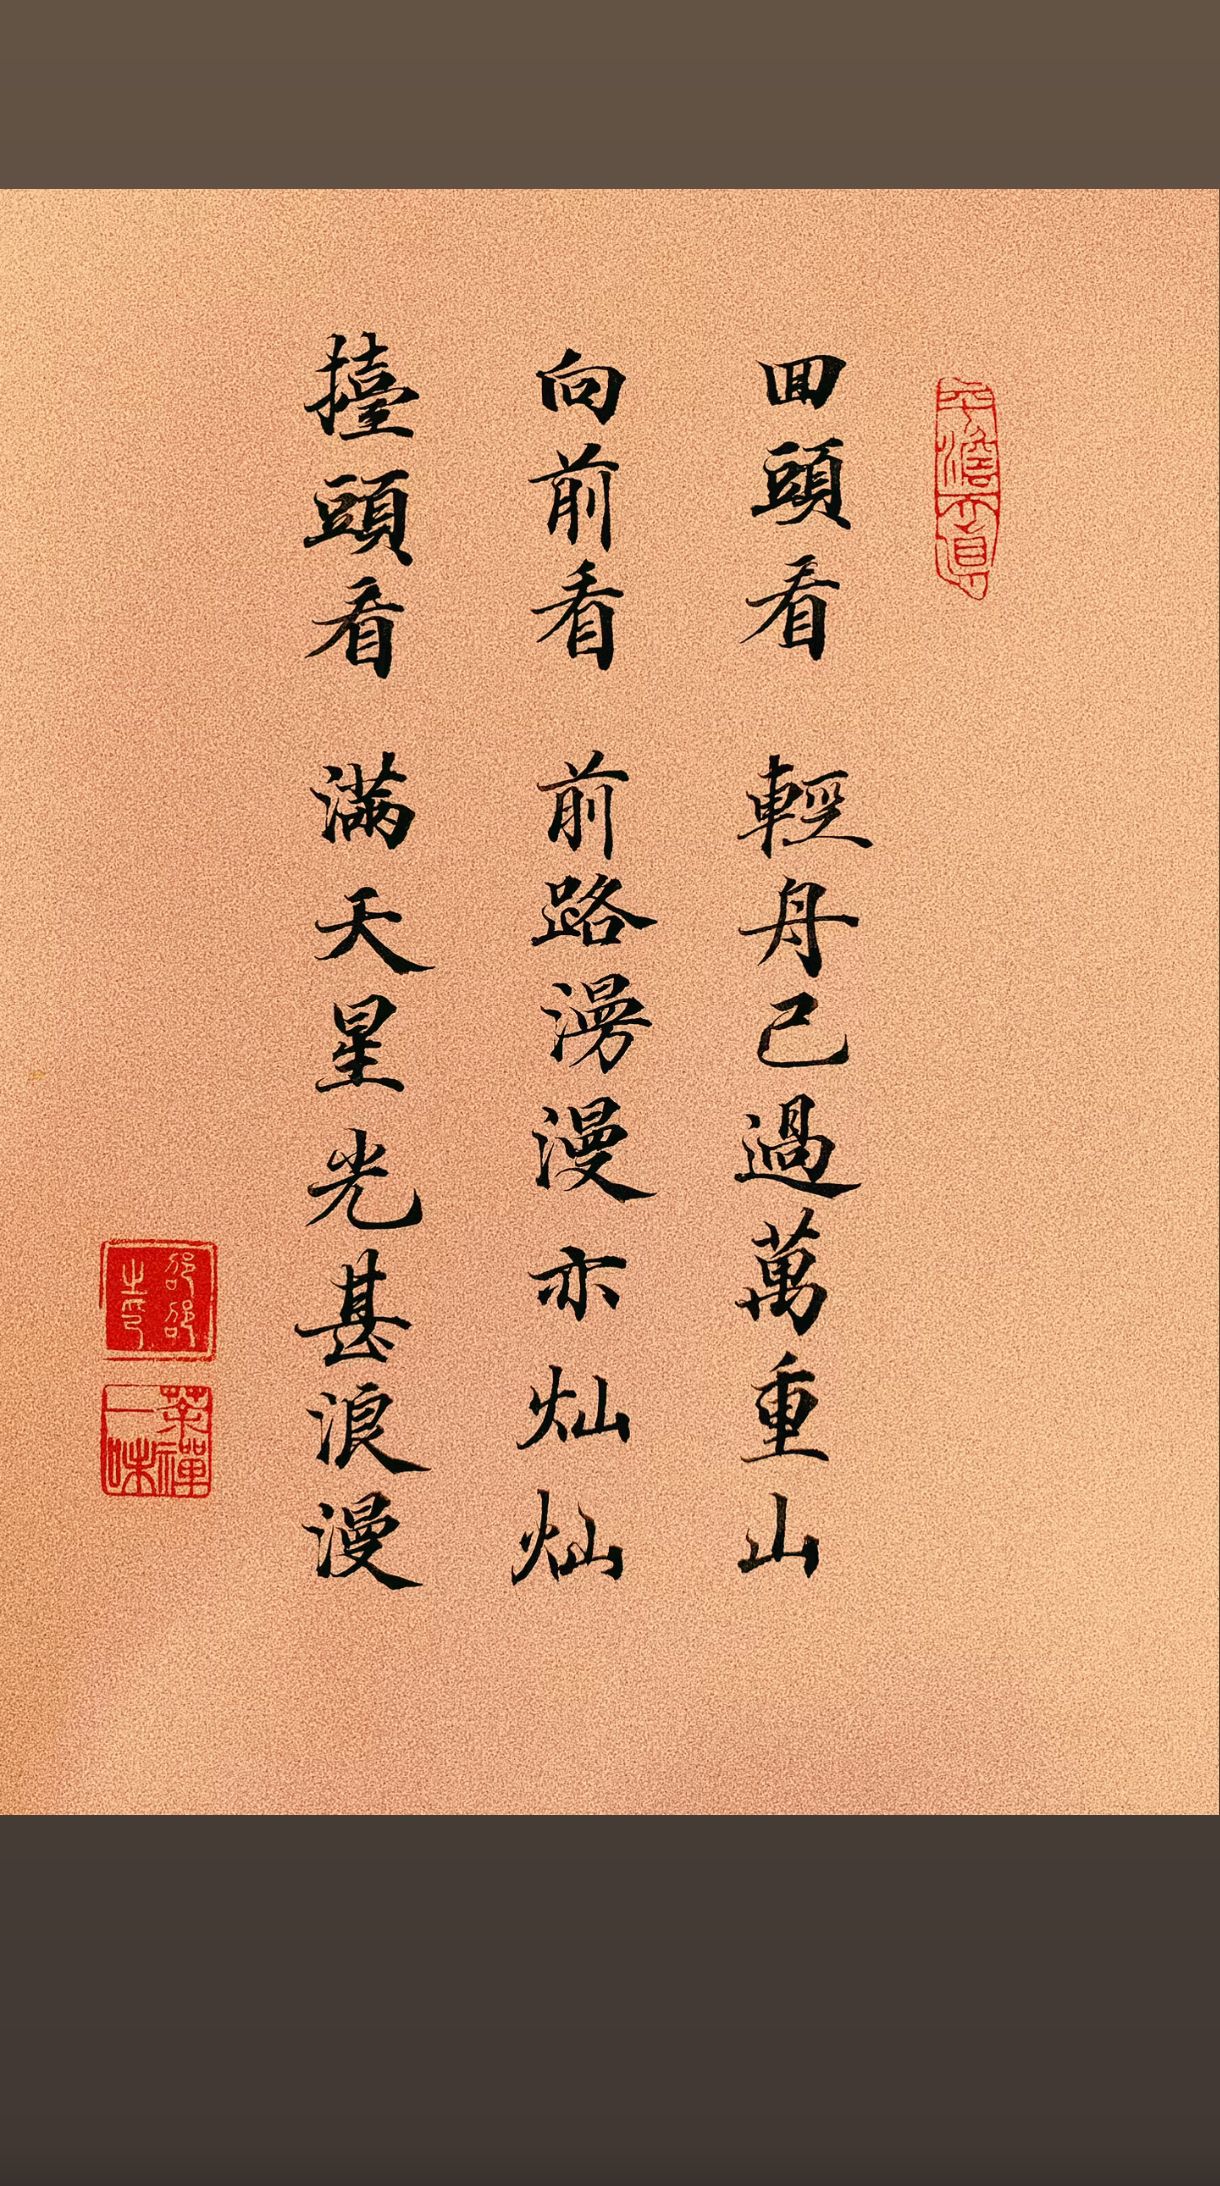 平澹天真
回頭看 輕舟已過萬重山
向前看 前路漫漫亦灿灿
擡頭看 滿天星光甚浪漫
之印
茶禪一味